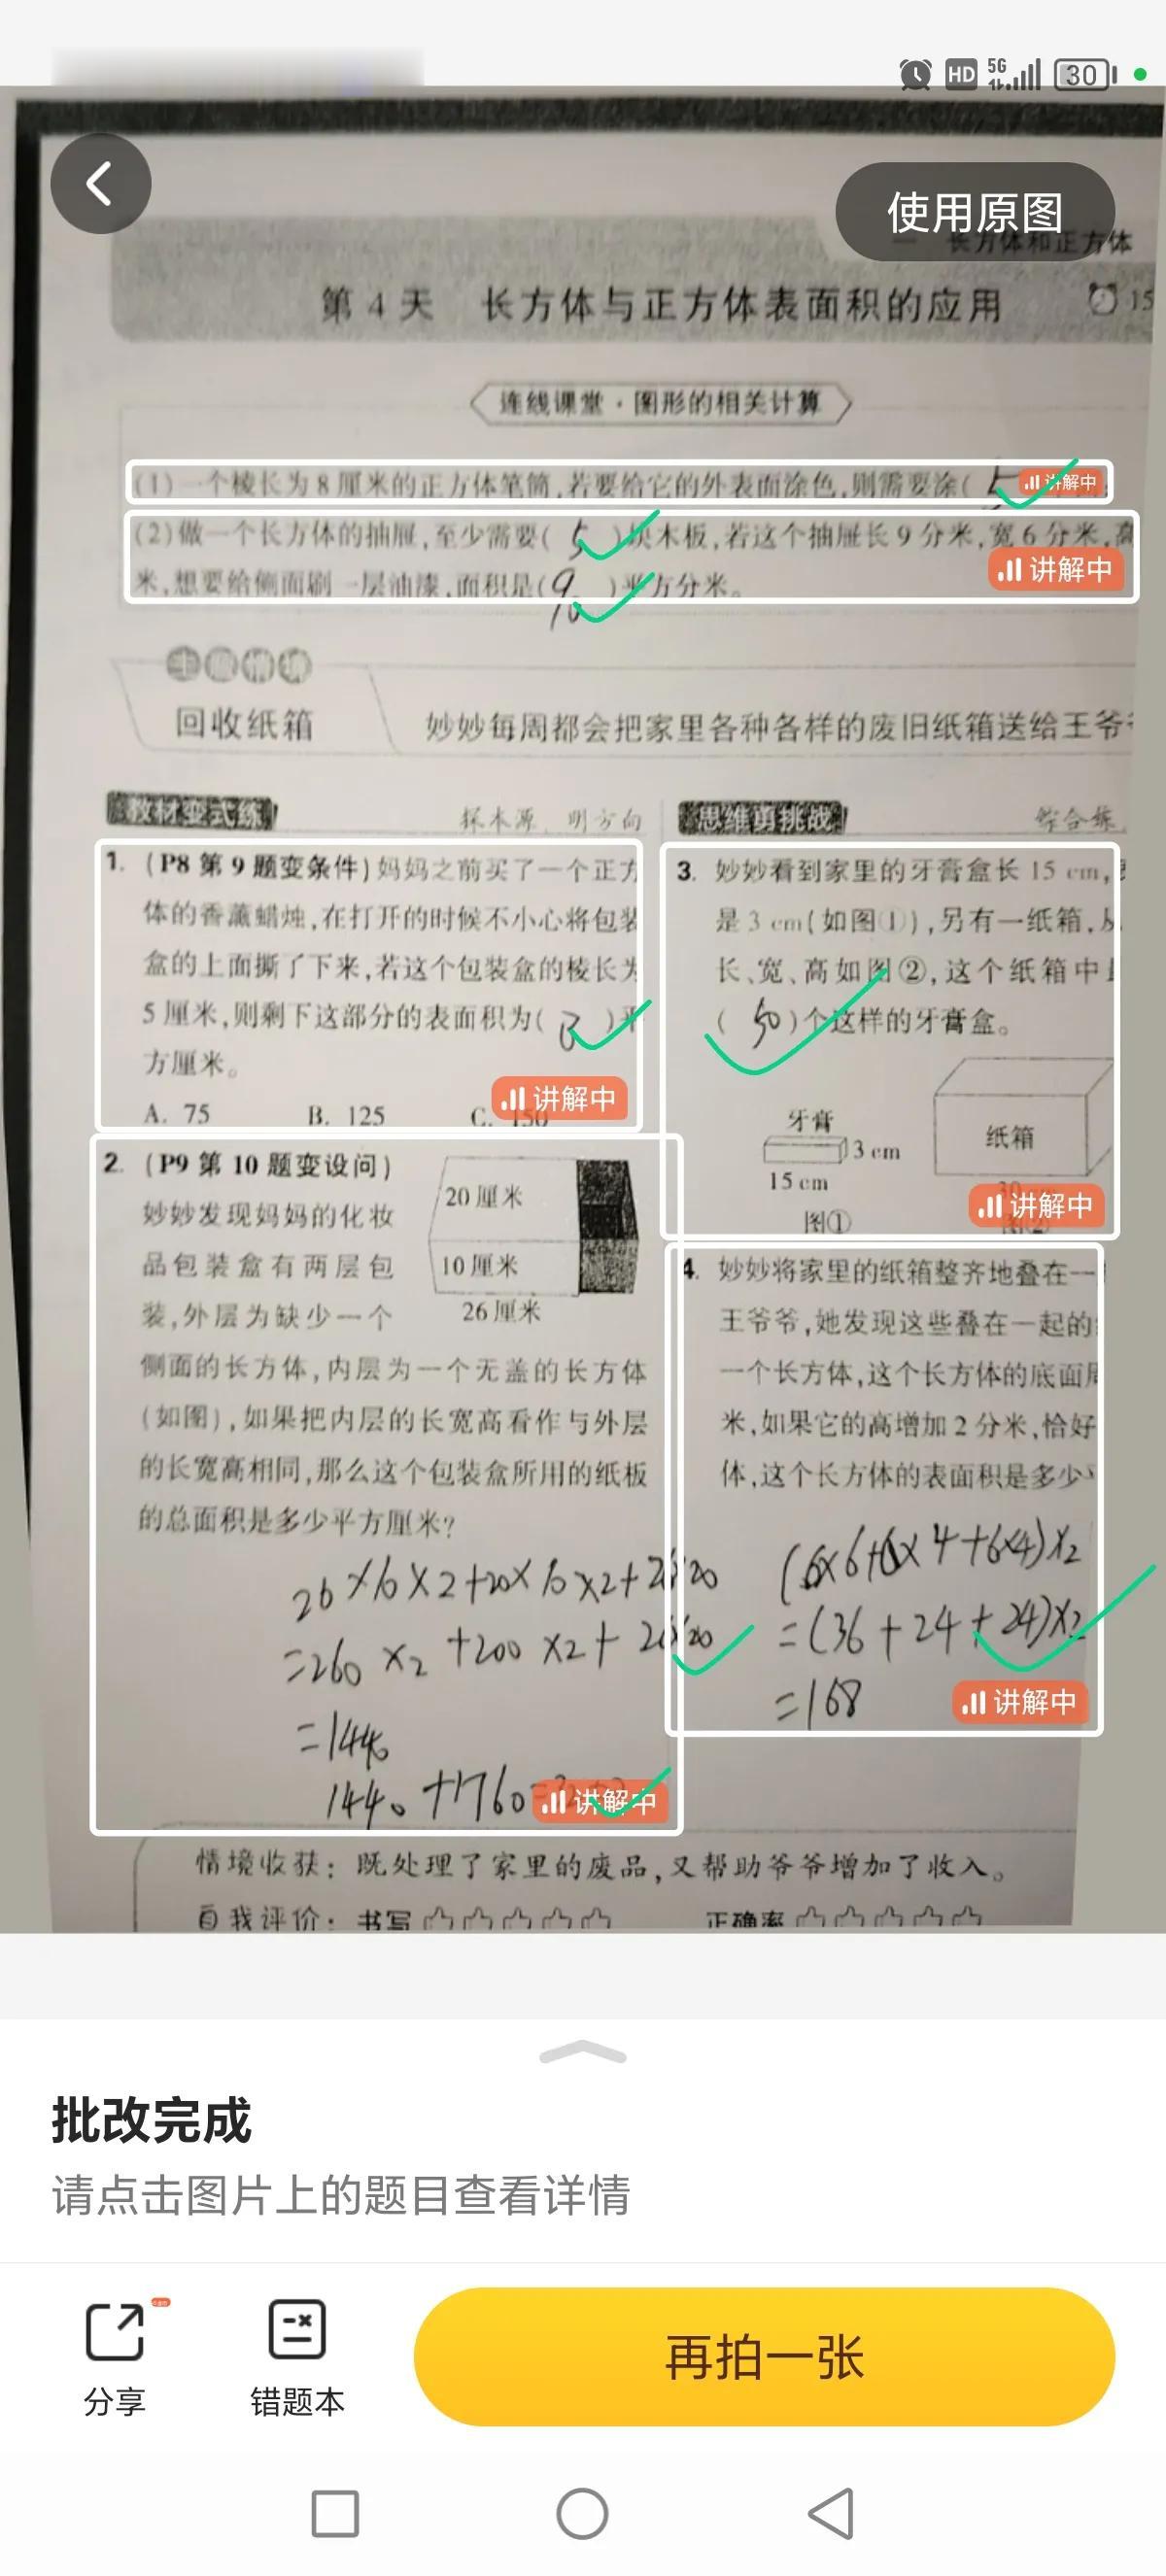 HD 5G 30
使用原图
长方体和正方体
第 4 天 长方体与正方体表面积的应用
15
连线课堂·图形的相关计算
(1)一个棱长为8厘米的正方体笔筒,若要给它的外表面涂色,则需要涂( 5
讲解中
(2)做一个长方体的抽屉,至少需要( 5 )块木板,若这个抽屉长9分米,宽6分米,高
米,想要给侧面刷一层油漆,面积是( 90 )平方分米。
讲解中
回收纸箱
妙妙每周都会把家里各种各样的废旧纸箱送给王爷爷
教材变式练 探本源 明方向
1. (P8 第 9 题变条件)妈妈之前买了一个正方
体的香薰蜡烛,在打开的时候不小心将包装
盒的上面撕了下来,若这个包装盒的棱长为
5厘米,则剩下这部分的表面积为( B )平
方厘米。
A. 75 B. 125 C. 150
讲解中
2. (P9 第 10 题变设问)
妙妙发现妈妈的化妆
品包装盒有两层包
装,外层为缺少一个
侧面的长方体,内层为一个无盖的长方体
(如图),如果把内层的长宽高看作与外层
的长宽高相同,那么这个包装盒所用的纸板
的总面积是多少平方厘米?
20厘米
10厘米
26厘米
=260×2+200×2+
=1440
1440+1760
讲解中
思维勇挑战 综合练
3. 妙妙看到家里的牙膏盒长 15 cm,
是 3 cm(如图①),另有一纸箱,从
长、宽、高如图②,这个纸箱中
( 50 )个这样的牙膏盒。
牙膏
3 cm
15 cm
图①
纸箱
30
图②
讲解中
4. 妙妙将家里的纸箱整齐地叠在一
王爷爷,她发现这些叠在一起的
一个长方体,这个长方体的底面周
米,如果它的高增加2分米,恰好
体,这个长方体的表面积是多少
(6×6+6×4+6×4)×2
=(36+24+24)×2
=168
讲解中
情境收获:既处理了家里的废品,又帮助爷爷增加了收入。
自我评价:书写 正确率
批改完成
请点击图片上的题目查看详情
分享
错题本
再拍一张